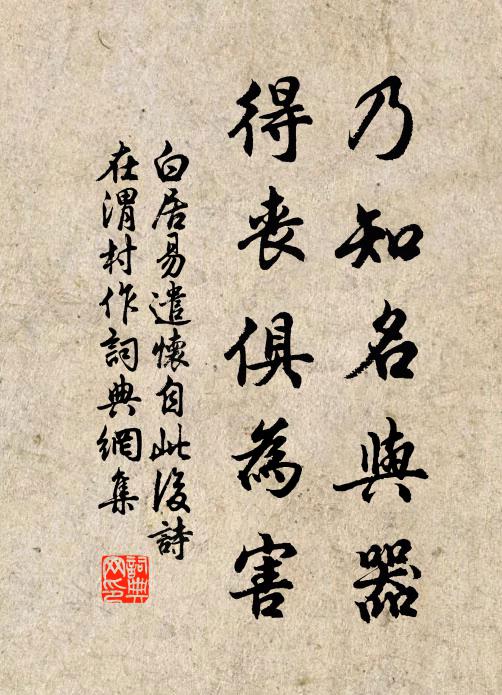 乃知名與器
得喪俱為害
白居易遣懷自此後詩
在渭村作詞典網集
詞典
网印